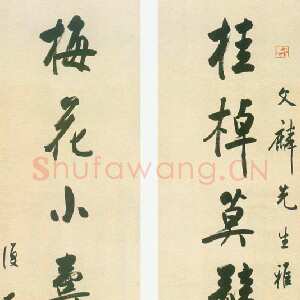 文麟先生雅
桂棹莫
梅花小
復
Shufawang.CN